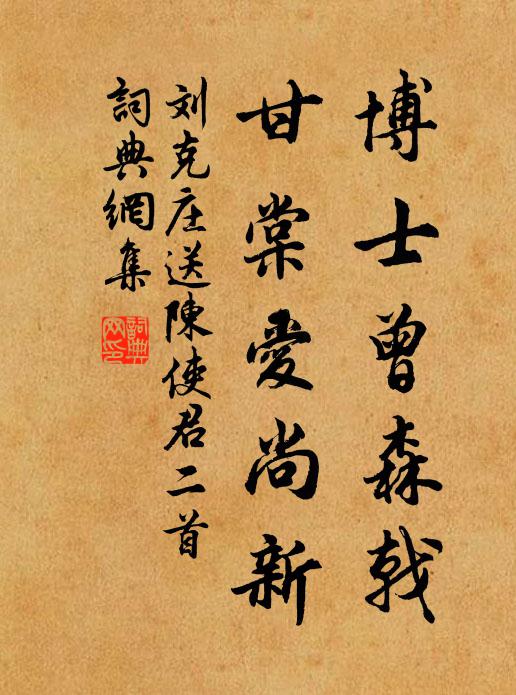 博士曾森戟
甘棠愛尚新
刘克庄送陳使君二首
詞典網集
詞典網印